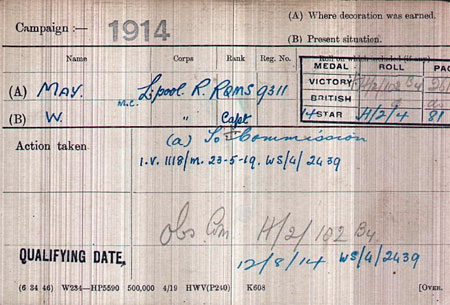 (A) Where decoration was earned.
Campaign :— 1914
(B) Present situation.
Name Corps Rank Reg. No. Roll on which
MEDAL ROLL PAG
(A) MAY. L'pool. R. 9311
VICTORY H/2/102 B4
BRITISH do
M.C.
(B) W. " Capt
14 STAR H/2/4 81
Action taken (a) To Commission
I.V. 1118/M. 23-5-19. WS/4/2439
Obs. Com H/2/102 B4.
QUALIFYING DATE, 12/8/14 WS/4/2439
(6 34 46) W234—HP5590 500,000 4/19 HWV(P240) K608 [OVER.